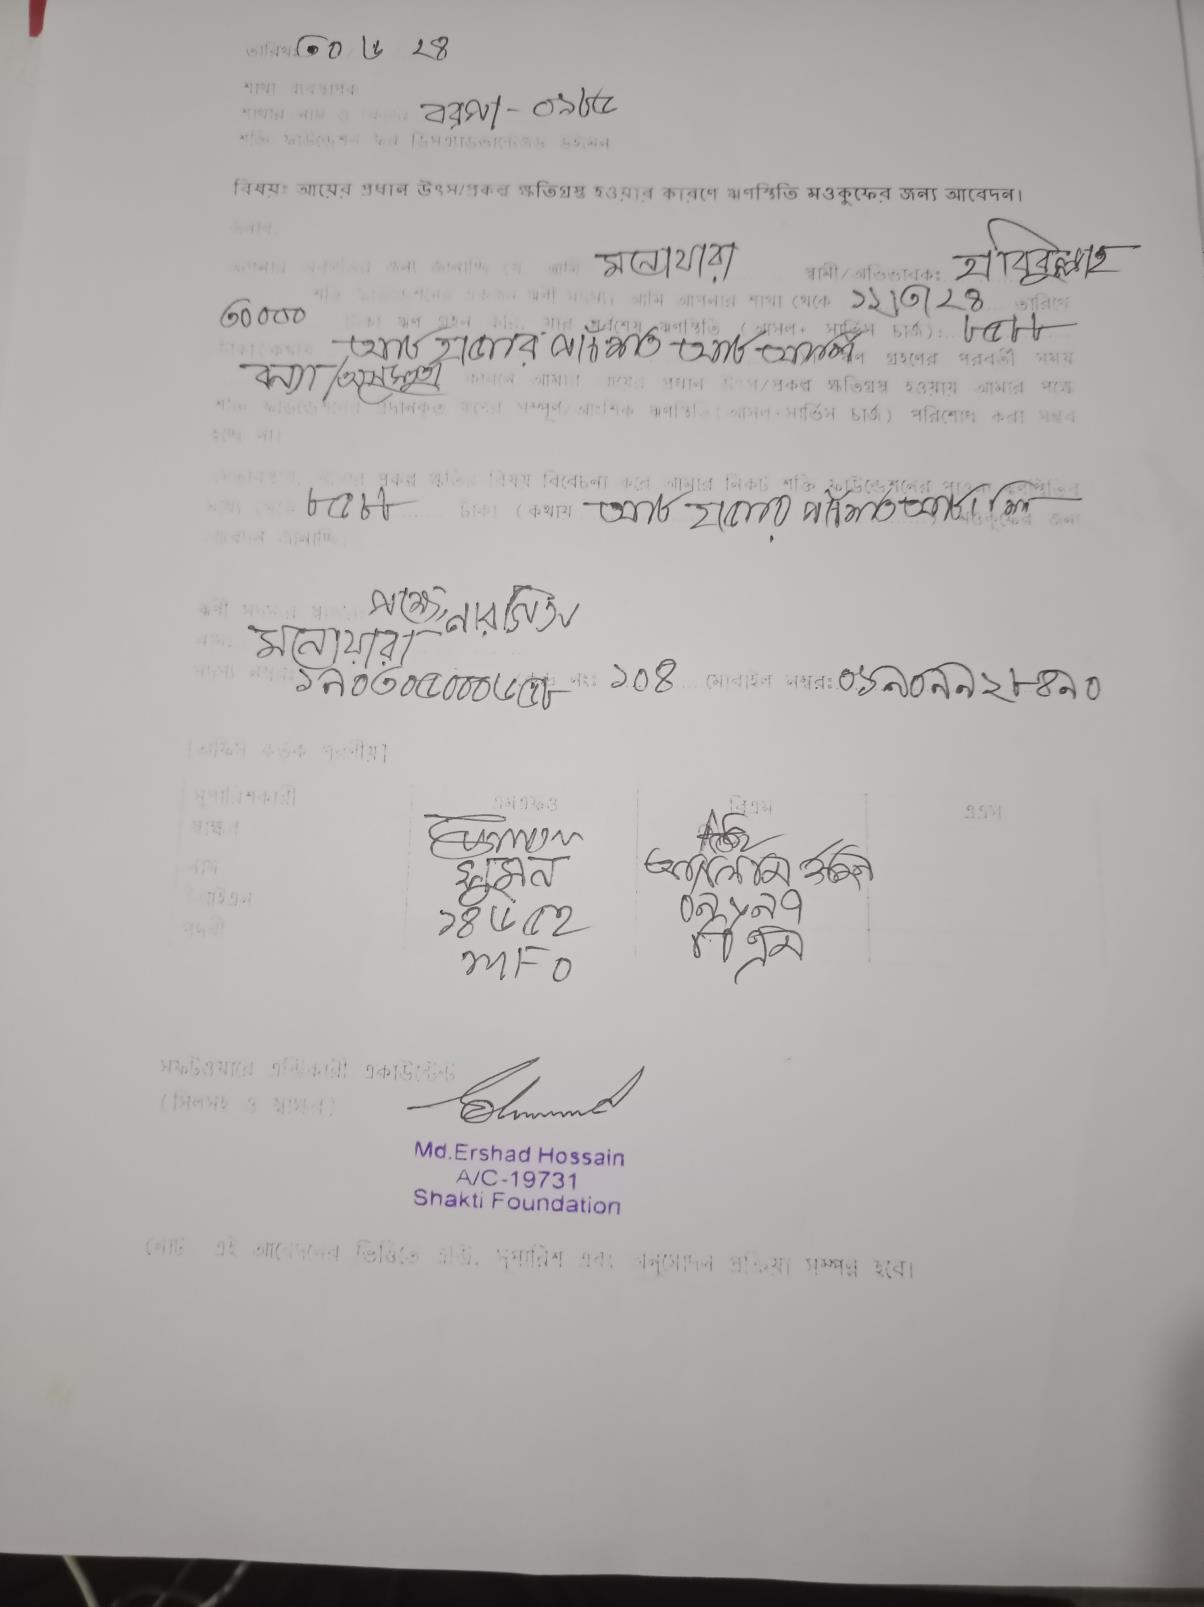 তারিখঃ ৩০ ৬ ২৪
শাখা ব্যবস্থাপক
শাখার নাম ও কোডঃ বরমা - ০১৮৫
শক্তি ফাউন্ডেশন ফর ডিসএ্যাডভান্টেজড উইমেন
বিষয়ঃ আয়ের প্রধান উৎস/প্রকল্প ক্ষতিগ্রস্ত হওয়ার কারণে ঋণস্থিতি মওকুফের জন্য আবেদন।
জনাব,
আপনার অবগতির জন্য জানাচ্ছি যে, আমি মনোয়ারা স্বামী/অভিভাবক: হাবিবুল্লাহ
শক্তি ফাউন্ডেশনের একজন ঋণী সদস্য। আমি আপনার শাখা থেকে ১১/৩/২৪ তারিখে
৩০০০০ টাকা ঋণ গ্রহন করি, যার সর্বশেষ ঋণস্থিতি (আসল+ সার্ভিস চার্জ): ৮৫৮৮
টাকা(কথায় আট হাজার পাঁচশত আট আশি ঋণ গ্রহণের পরবর্তী সময়
বন্যা/ কারনে আমার আয়ের প্রধান উৎস/প্রকল্প ক্ষতিগ্রস্ত হওয়ায় আমার পক্ষে
শক্তি ফাউন্ডেশনের প্রদানকৃত ঋণের সম্পূর্ণ/আংশিক ঋণস্থিতি(আসল+সার্ভিস চার্জ) পরিশোধ করা সম্ভব
হচ্ছে না।
প্রকল্প ক্ষতির বিষয় বিবেচনা করে আমার নিকট শক্তি ফাউন্ডেশনের পাওনা ঋণস্থিতির
মধ্যে ৮৫৮৮ টাকা (কথায় আট হাজার পাঁচশত আট আশি মওকুফের জন্য
আবেদন জানাচ্ছি
ঋণী সদস্যের পক্ষে,
নাম: মনোয়ারা
সদস্য নম্বরঃ ১৯০৩০৫০০০৬৫৮ নং: ১০৪ মোবাইল নম্বর: ০১৯০৯৯২৮৪৯০
[অফিস কর্তৃক পূরণীয়]
সুপারিশকারী এমএফও বিএম এএম
স্বাক্ষর
নাম সুমন
১৪৬৫২
পদবী MFO বি এম
সফটওয়্যারে এন্ট্রিকারী একাউন্টেন্ট
(সিলসহ ও স্বাক্ষর)
Md.Ershad Hossain
A/C-19731
Shakti Foundation
নোট এই আবেদনের ভিত্তিতে এন্ট্রি, সুপারিশ এবং অনুমোদন প্রক্রিয়া সম্পন্ন হবে।